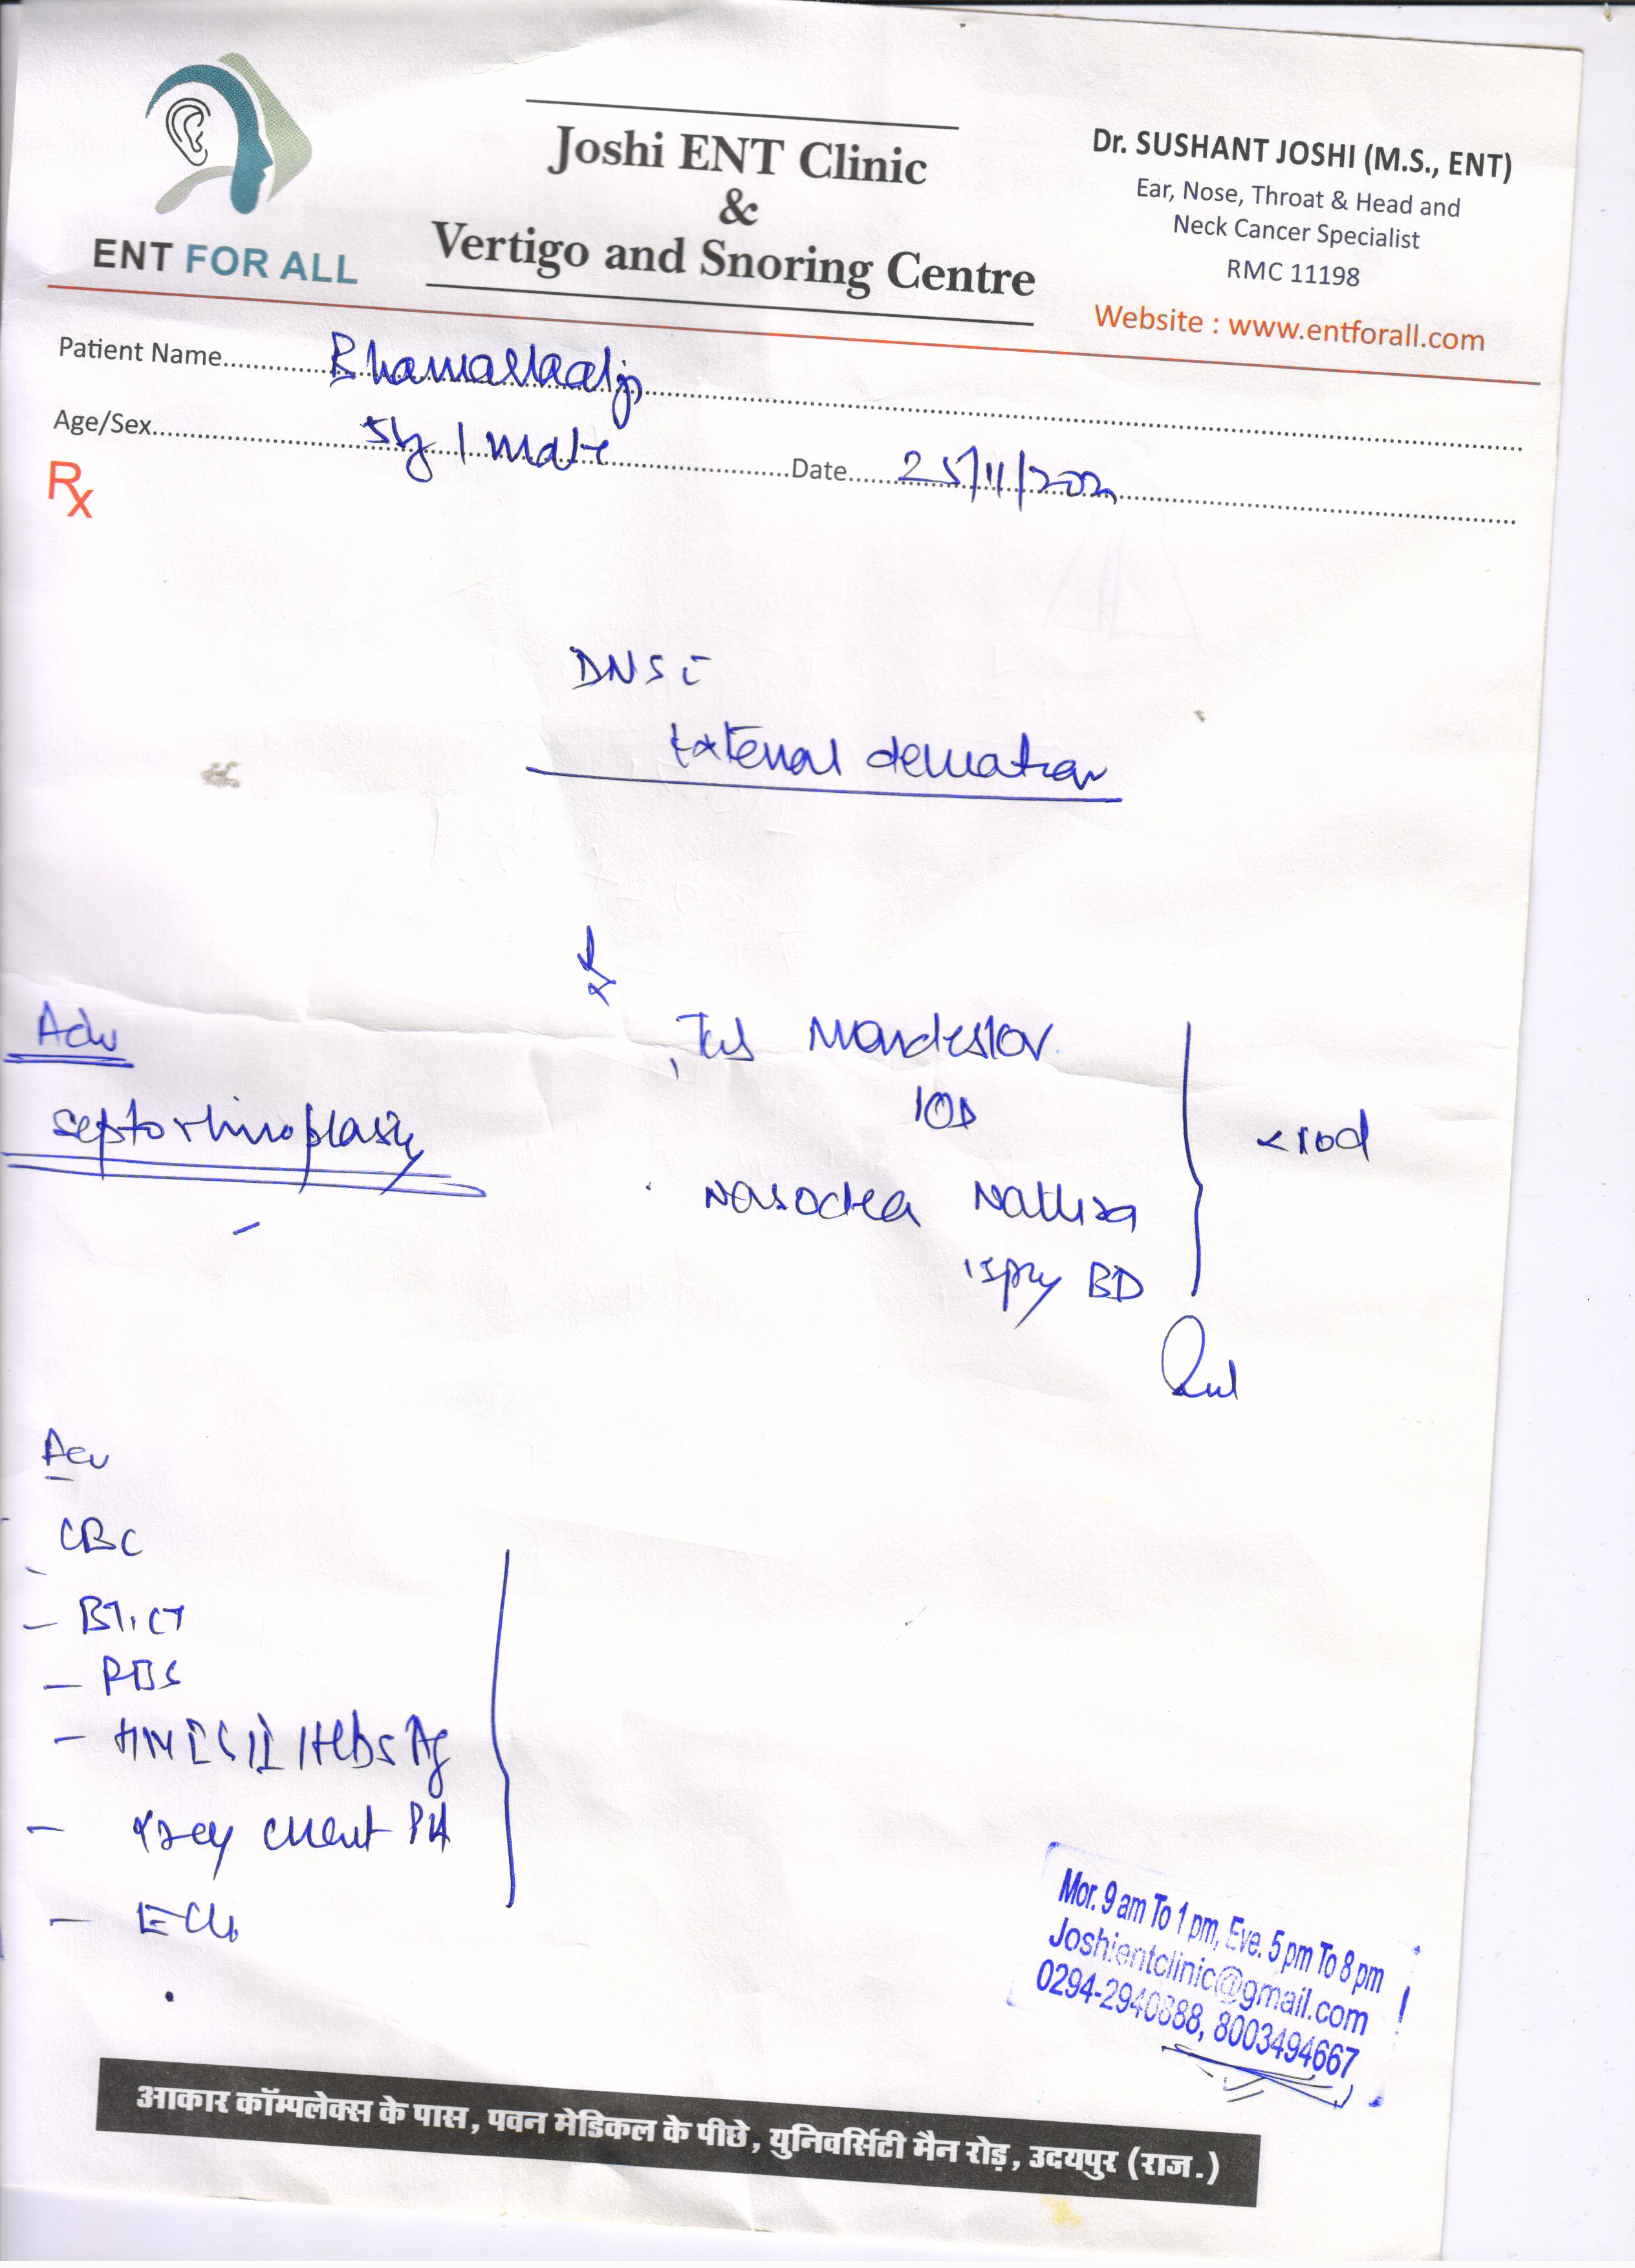 ENT FOR ALL
Joshi ENT Clinic
&
Vertigo and Snoring Centre
Dr. SUSHANT JOSHI (M.S., ENT)
Ear, Nose, Throat & Head and
Neck Cancer Specialist
RMC 11198
Website : www.entforall.com
Patient Name
Age/Sex male Date 25/11/202
Rx
DNS c̄
External deviation
Adv
Septorhinoplasty
Rx
Tab
1OD
x10d
Nasoclear
1spry BD
Adv
CBC
- BT, CT
- RBS
- HIV I & II / HbsAg
- Xray chest PA
- ECG
Mor. 9 am To 1 pm, Eve. 5 pm To 8 pm
Joshientclinic@gmail.com
0294-2940888, 8003494667
आकार कॉम्पलेक्स के पास, पवन मेडिकल के पीछे, युनिवर्सिटी मैन रोड़, उदयपुर (राज.)